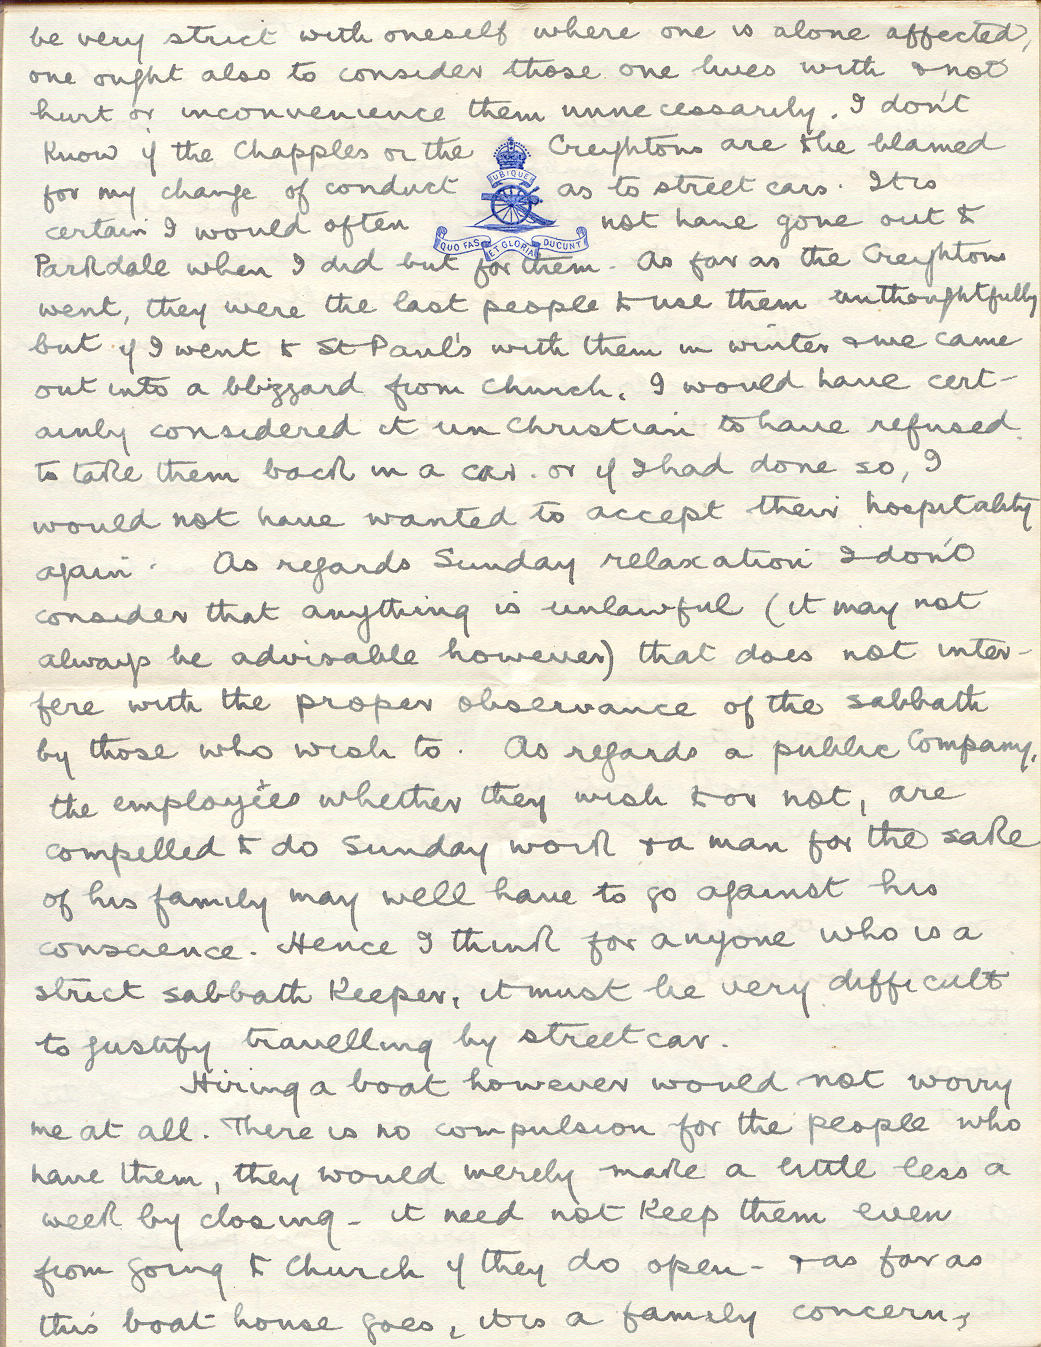 be very strict with oneself where one is alone affected,
one ought also to consider those one lives with & not
hurt or inconvenience them unnecessarily. I don't
know if the Chapples or the Creightons are the blamed
for my change of conduct as to street cars. It is
certain I would often not have gone out to
Parkdale when I did but for them. As far as the Creightons
went, they were the last people to use them unthoughtfully
but if I went to St Paul's with them in winter & we came
out into a blizzard from church, I would have cert-
ainly considered it unChristian to have refused
to take them back in a car. or if I had done so, I
would not have wanted to accept their hospitality
again. As regards Sunday relaxation I don't
consider that anything is unlawful (it may not
always be advisable however) that does not inter-
fere with the proper observance of the sabbath
by those who wish to. As regards a public Company,
the employees whether they wish to or not, are
compelled to do Sunday work & a man for the sake
of his family may well have to go against his
conscience. Hence I think for anyone who is a
strict sabbath keeper, it must be very difficult
to justify travelling by street car.
Hiring a boat however would not worry
me at all. There is no compulsion for the people who
have them, they would merely make a little less a
week by closing - it need not keep them even
from going to Church if they do open - & as far as
this boat house goes, it is a family concern,
UBIQUE
QUO FAS ET GLORIA DUCUNT